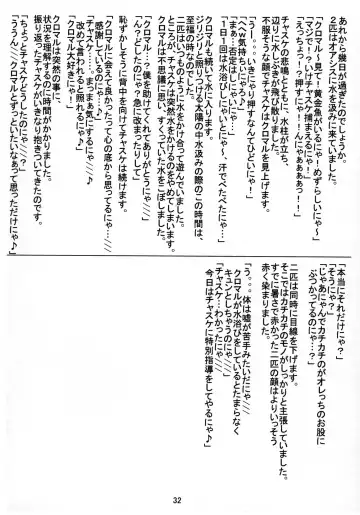 あれから幾日が過ぎたのでしょうか。
2匹はオアシスに水を汲みに来ていました。
「クロマル~見て!黄金魚がいるにゃ!めずらしいにゃ~」
「マジにゃ!?チャスケ捕まえるにゃ!」
「えっちょっ!?押すにゃぁぁぁぁぁっ!!」
チャスケの悲鳴とともに、水柱が立ち、
辺りに水しぶきが飛び散りました。
不服そうな顔でチャスケはクロマルを見上げます。
「おいっ!いきにゃり押すなんてひどいにゃ!」
「へへW気持ちいいにゃろ?」
「まぁ…否定はしにゃいにゃ…」
「1日1回は水浴びしにゃいとにゃ~、汗でべたべたにゃ…」
クロマルも続いて水に入ります。
ジリジリと照りつける太陽の中水汲みの際のこの時間は、
至福の時なのでした。
二匹はいつものように水をかけ合って遊んでいました。
ところが、チャスケは突然水をかけるのをやめてしまいます。
クロマルは不思議に思い、すくっていた水をこぼしました。
「クロマル…?僕を助けてくれてありがとうにゃ///」
「ん?どしたのにゃ?急に改まったりして」
恥ずかしそうに背中を向けてチャスケは続けます。
「クロマルに会えて良かったって心の底から思ってるにゃ///
感謝しているのにゃ…///」
「チャスケ…。えっとまぁ気にするにゃ///
改めて言われると照れるにゃ♪」
「クロマル大好きにゃ!」
クロマルは突然の事に、
状況を理解するのに時間がかかりました。
振り返ったチャスケがいきなり抱きついてきたのです。
「ちょっとチャスケどうしたのにゃ~?」
「ううん♪クロマルとずっといたいなって思っただけにゃ♪」
「本当にそれだけにゃ?」
「そうにゃ?」
「じゃあにゃんでカチカチのがオレっちのお股に
ぶつかってるのにゃ…?」
二匹は同時に目線を下げます。
そこではカチカチのモノがしっかりと主張していました。
すでに暑さで赤かった二匹の顔はよりいっそう
赤く染まりました。
「う。。。体は嘘が苦手みたいだにゃ///
クロマルが水浴びをしているとたまらなく
キュンとしちゃうのにゃ///」
「チャスケ…わかったにゃ///
今日はチャスケに特別指導をしてやるにゃ♪」
32